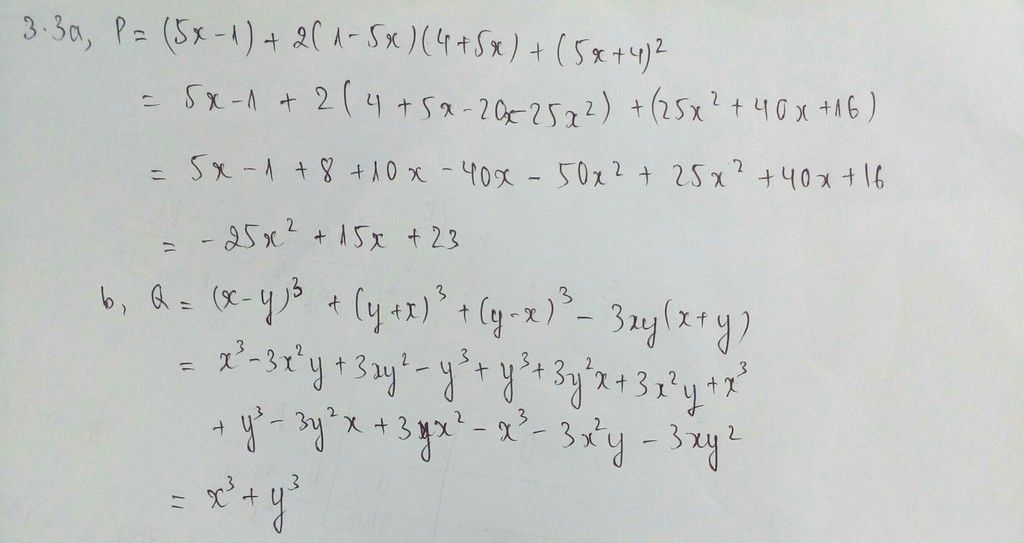 3.3a, P = (5x-1) + 2(1-5x)(4+5x) + (5x+4)²
= 5x-1 + 2(4+5x-20x-25x²) + (25x²+40x+16)
= 5x-1+8+10x-40x-50x²+25x²+40x+16
= -25x²+15x+23
b, Q = (x-y)³ + (y+x)³ + (y-x)³ - 3xy(x+y)
= x³-3x²y+3xy²-y³+y³+3y²x+3x²y+x³
+y³-3y²x+3yx²-x³-3x²y-3xy²
= x³+y³